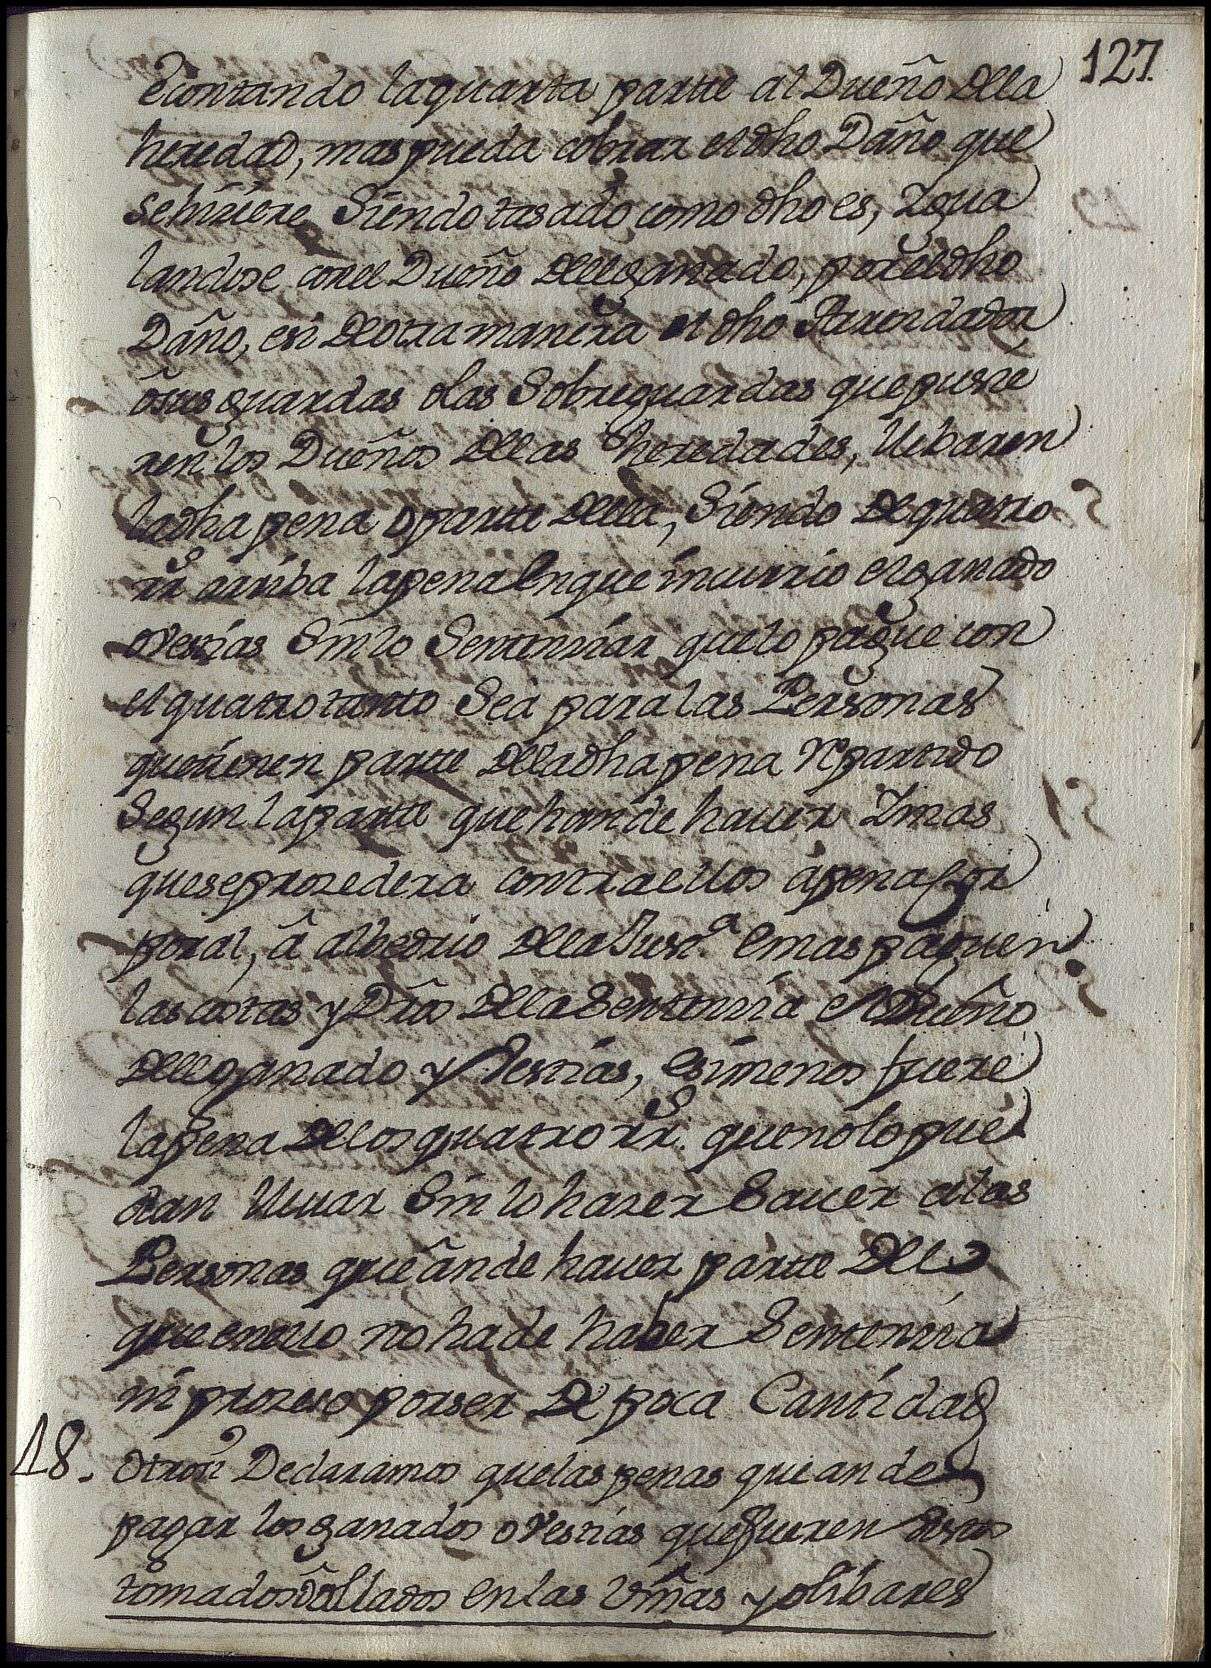 127
econtando laquarta partte al Dueño della
heredad, mas pueda cobrar eldho Daño que
sehiziere Siendo tasado como dho es, Zgua
landose conel Dueño delleganado, por eldho
Daño, esi deotra manera el dho Arrendador
osus guardas olas Sobreguardas que pusie
ren los Dueños dellas heredades, llebaren
ladha pena oparte della, Siendo de quatro
rr.s arriba lapena En que incurrio elganado
obestias Sinlo Sentenziar quelo pague con
el quatrotanto Sea para las Personas
quetienen partte delladha pena repartido
Segun laparte que hande hauer Zmas
queseprozedera contra ellos ápena Cor
poral, â albedrio della Jusª. Emas paguen
las costas y Dros della Sentenzia el Dueño
delleganado y bestias, esimenos fuere
lapena delosquatro rr.s quenolo pue
dan lleuar Sin lo hazer Sauer alas
Personas que ânde hauer partte dello
que enello no hade haber Sentenzia
ni prozeso porser de poca Cantidad
18. Otrosi Declaramos quelas penas que an de
pagar los ganados obestias quefueren
tomados ôallados en las Viñas yolibares